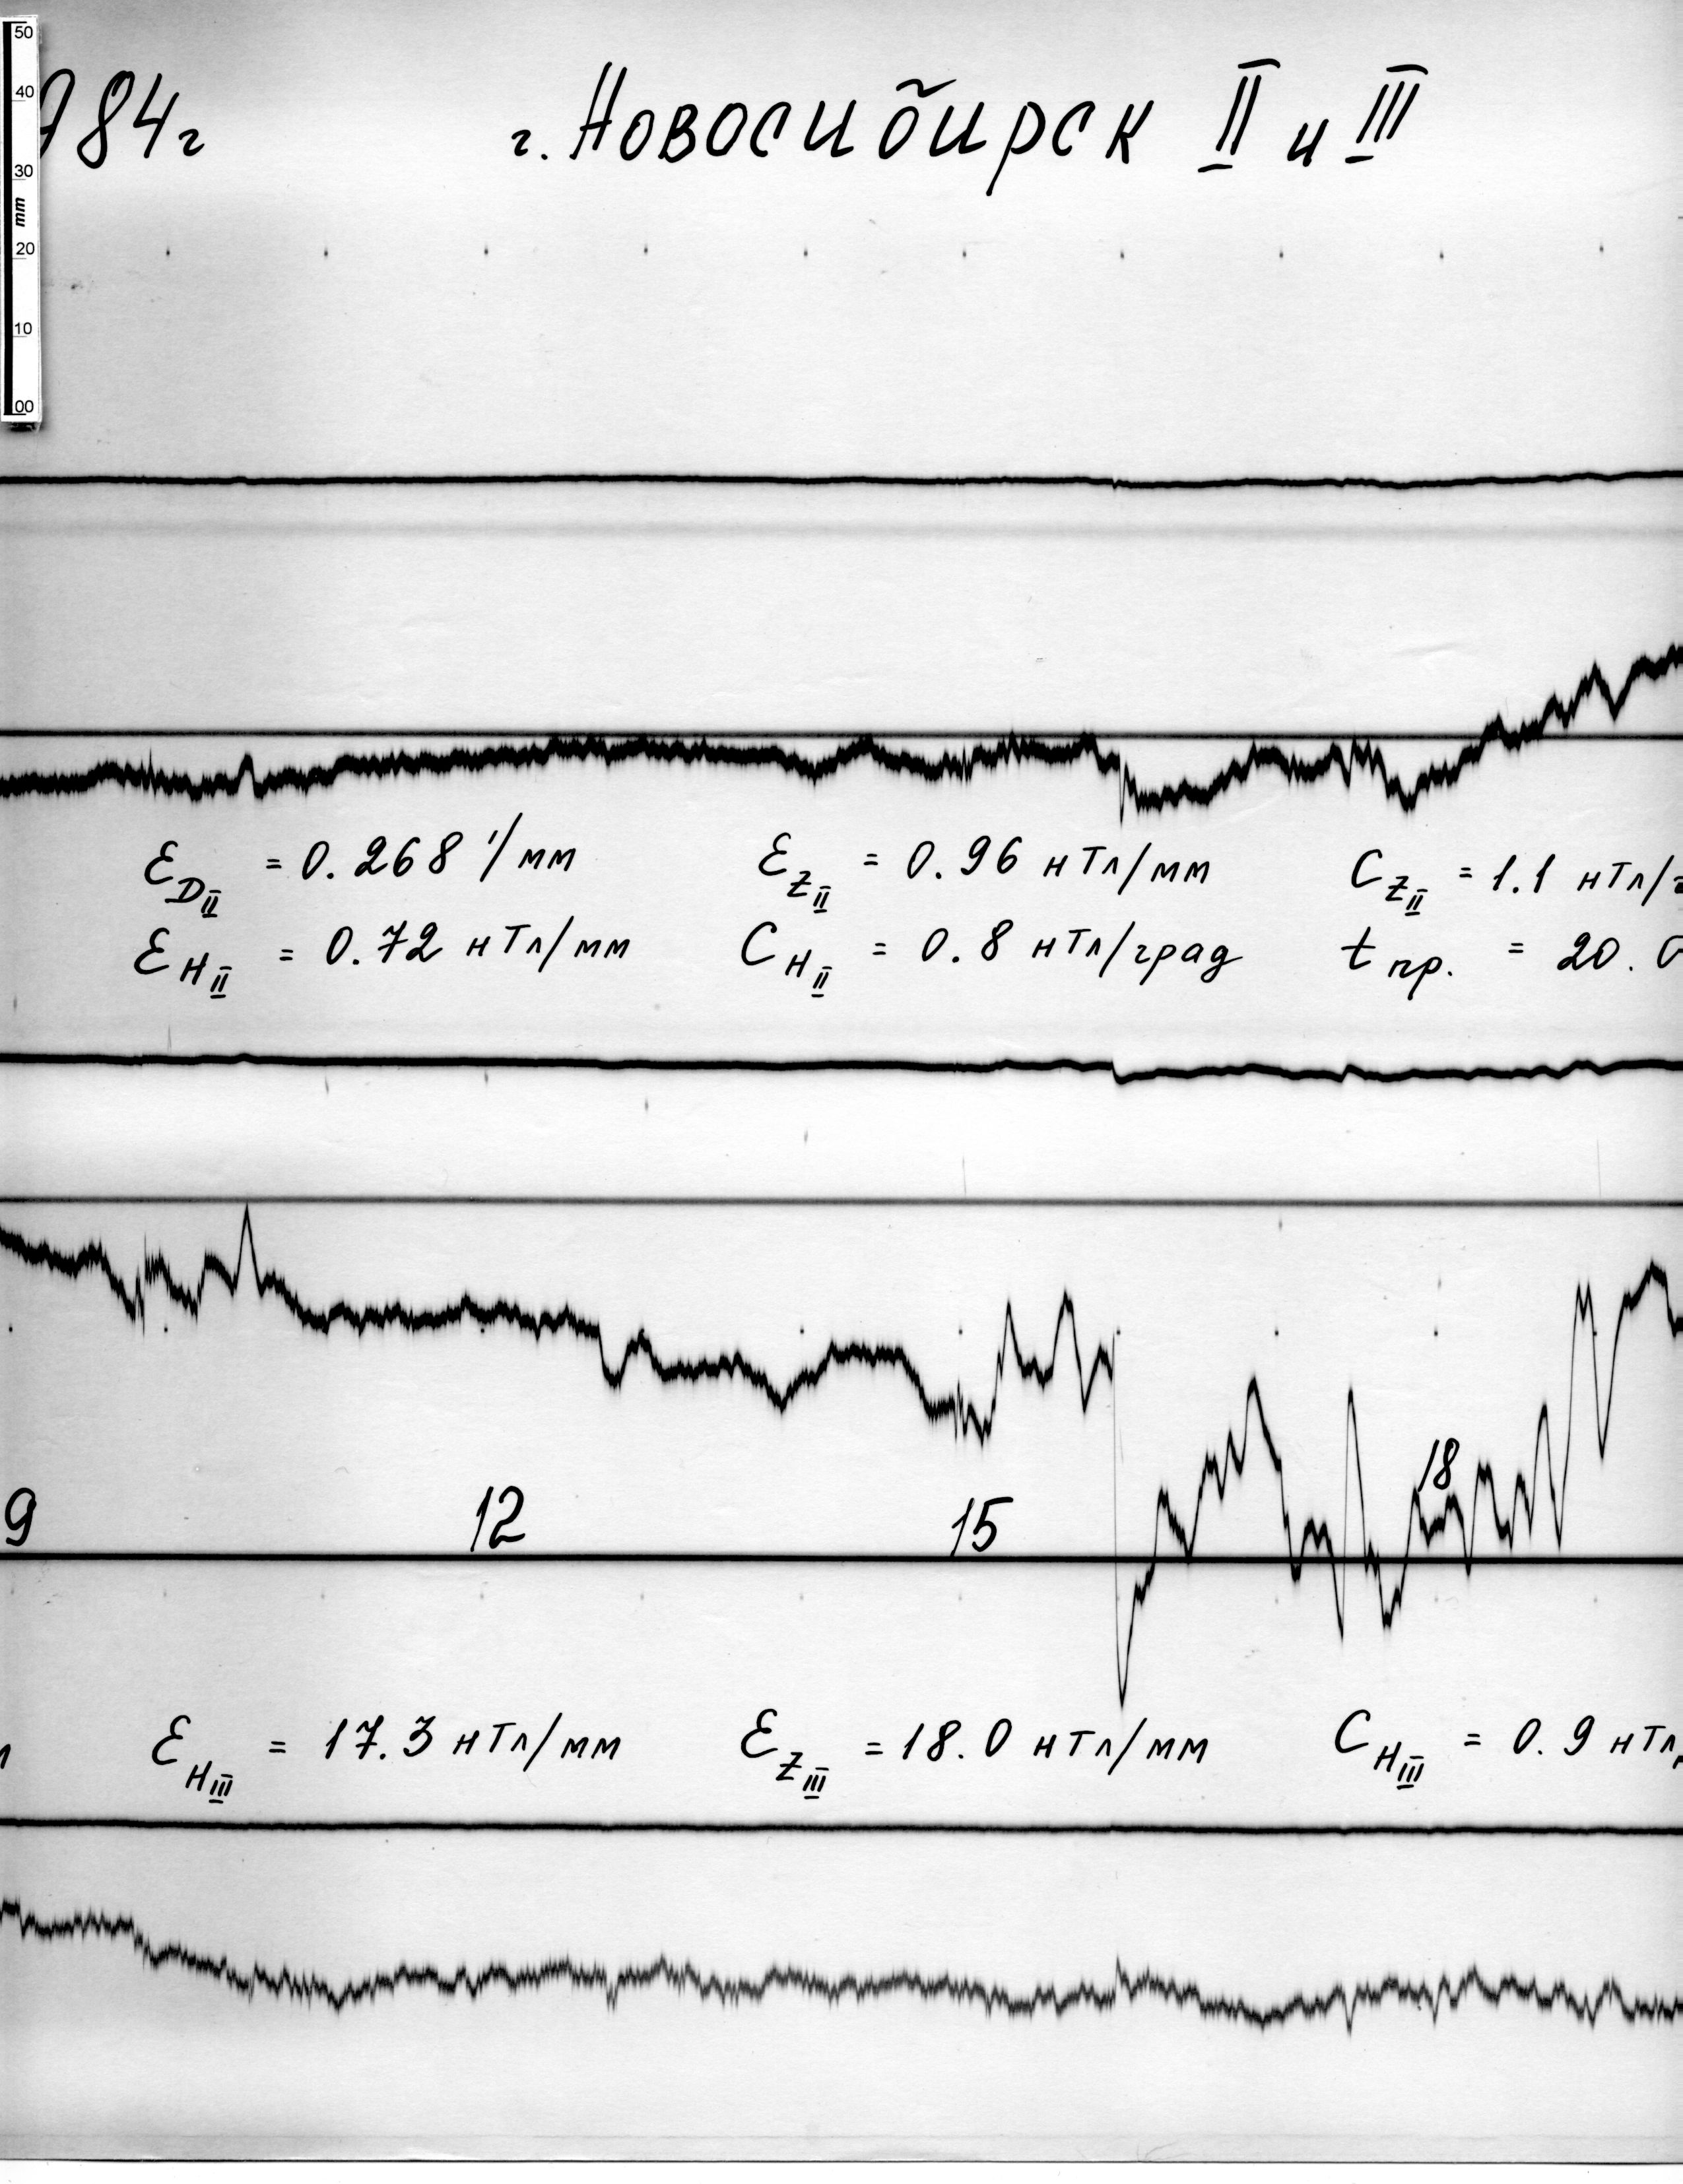 50
40
30
mm
20
10
00
984г г. Новосибирск II и III
ε D II = 0.268 '/мм ε Z II = 0.96 нТл/мм C Z II = 1.1 нТл/г
ε H II = 0.72 нТл/мм C H II = 0.8 нТл/град t пр. = 20.0
18
9 12 15
ε H III = 17.3 нТл/мм ε Z III = 18.0 нТл/мм C H III = 0.9 нТл